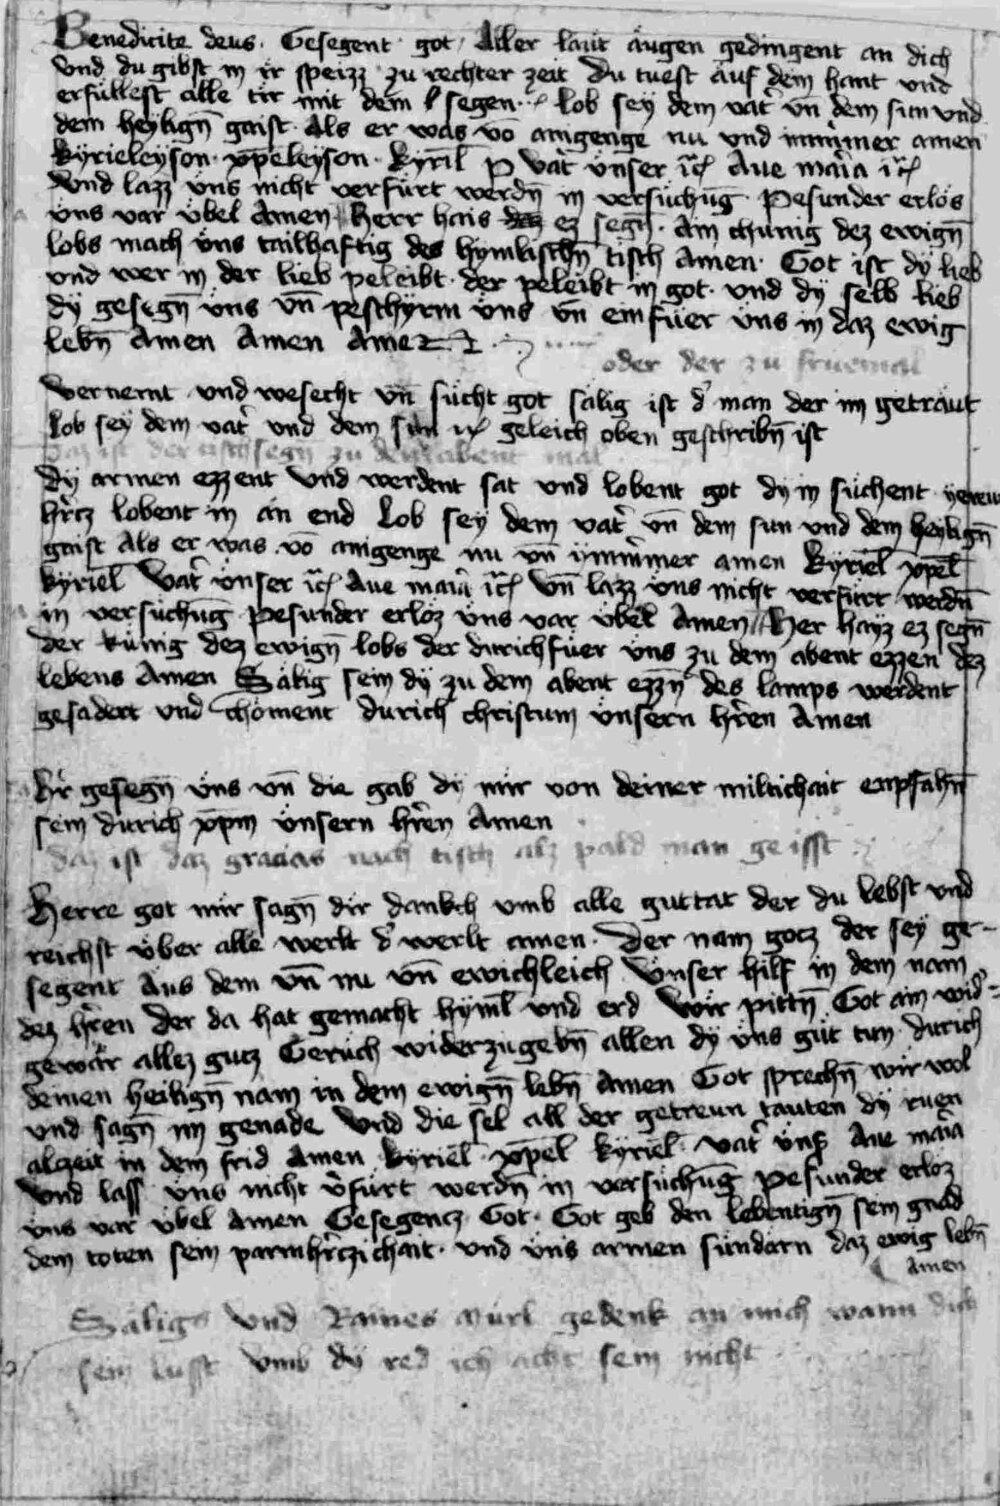 Benedicite deus. Gesegent got Aller laut äugen gedingent an dich
und du gibst in ir speizz zu rechter zeit Du tuest auf dein hant und
erfüllest alle tir mit dem segen. lob sey dem vat' vn̄ dem sun und
dem heylign̄ gaist. Als er was vō amgenge nu und immmer amen
kyrieleyson. xp̄eleyson. kyrīl vat' ünser Aue maīa
und lazz üns nicht verfürt werdn̄ in versüchūg. Pesunder erlös
üns var übel Amen Herr hais ez segn̄. Ain chunig dez ewign̄
lobs mach üns tailhaftig des hymlischn̄ tisch Amen. Got ist dy lieb
und wer in der lieb peleibt. der peleibt in got. und dy selb lieb
dy gesegn̄ üns vn̄ peschyrm üns vn̄ einfüer üns in daz ewig
lebn̄ Amen Amen Amen
oder der zu fruemal
vernemt und wesecht vn̄ sücht got sälig ist d' man der im getraut
Lob sey dem vat' und dem sun geleich oben geschribn̄ ist
daz ist der tischsegn zu dem abent mal
Dy armen ezzent und werdent sat und lobent got dy in süchent
h'rcz lobent in än end Lob sey dem vat' vn̄ dem sun und dem heylign̄
gaist Als er was vō amgenge nu vn̄ ymmer amen kyriel xp̄el
kyriel vat' ünser Aue maīa vn̄ lazz üns nicht verfürt werdn̄
in versüchūg Pesunder erloz üns var übel Amen Her hayz ez segn̄
der künig dez ewign̄ lobs der durichfüer üns zu dem abent ezzen dez
lebens Amen Sälig sein dy zu dem abent ezzn̄ des lamps werdent
gesadert und choment durich christum ünsern h'ren Amen
H'r gesegn̄ üns vn̄ die gab dy mir von deiner miltichait enpfahn̄
sein durich xp̄m ünsern h'ren Amen
daz ist daz gracias nach tisch alz pald man geisst
Herre got mir sagn̄ dir dankch umb alle guttat der du lebst und
reichst über alle werlt d' werlt amen. Der nam gotz der sey ge-
segent Aus dem vn̄ nu vn̄ ewichleich ünser hilf in dem nam
dez h'ren der da hat gemacht hyml̄ und erd Wir pittn̄ Got ain wid'=
gewär allez gutz Geruch widerzugebn̄ allen dy üns güt tun durich
deinen heilign̄ nam in dem ewign̄ lebn̄ Amen Got sprechn̄ wir wol
und sagn̄ im genade und die sel all der getreun tauten dy ruen
alczeit in dem frid Amen kyriel xp̄el kyriel vat' üns' Aue maīa
und lass üns nicht v'fürt werdn̄ in versüchūg Pesunder erloz
üns var übel Amen Gesegencz Got. Got geb den lebentign̄ sein gnad
dem toten sein parmh'rczichait. und üns armen sündarn daz ewig lebn̄
Amen
Säligs und Raines gedenk an mich wann dich
sein lusst umb dy red ich acht sein nicht